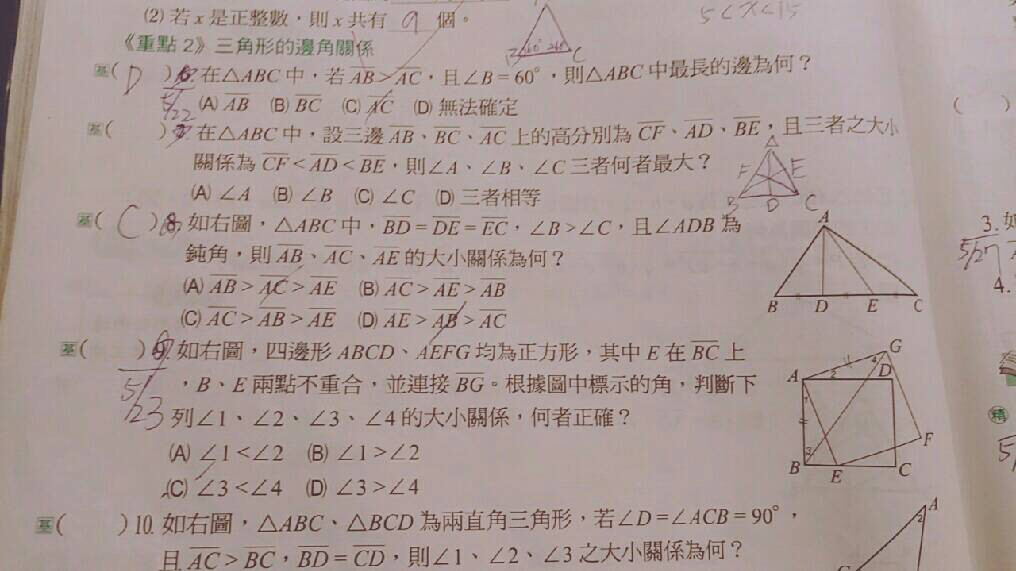 (2) 若 x 是正整數，則 x 共有 9 個。
5<x<15
《重點 2》三角形的邊角關係
基( D ) 6. 在△ABC 中，若 AB > AC，且∠B = 60°，則△ABC 中最長的邊為何？
5/22
(A) AB (B) BC (C) AC (D) 無法確定
基( ) 7. 在△ABC 中，設三邊 AB、BC、AC 上的高分別為 CF、AD、BE，且三者之大小
關係為 CF < AD < BE，則∠A、∠B、∠C 三者何者最大？
(A) ∠A (B) ∠B (C) ∠C (D) 三者相等
F E
B D C
基( C ) 8. 如右圖，△ABC 中，BD = DE = EC，∠B > ∠C，且∠ADB 為
鈍角，則 AB、AC、AE 的大小關係為何？
(A) AB > AC > AE (B) AC > AE > AB
(C) AC > AB > AE (D) AE > AB > AC
A
B D E C
基( ) 9. 如右圖，四邊形 ABCD、AEFG 均為正方形，其中 E 在 BC 上
，B、E 兩點不重合，並連接 BG。根據圖中標示的角，判斷下
5/23
列∠1、∠2、∠3、∠4 的大小關係，何者正確？
(A) ∠1 < ∠2 (B) ∠1 > ∠2
(C) ∠3 < ∠4 (D) ∠3 > ∠4
G
A D
F
B E C
基( ) 10. 如右圖，△ABC、△BCD 為兩直角三角形，若∠D = ∠ACB = 90°，
且 AC > BC，BD = CD，則∠1、∠2、∠3 之大小關係為何？
A
2
3. 如
5/27
4.
精